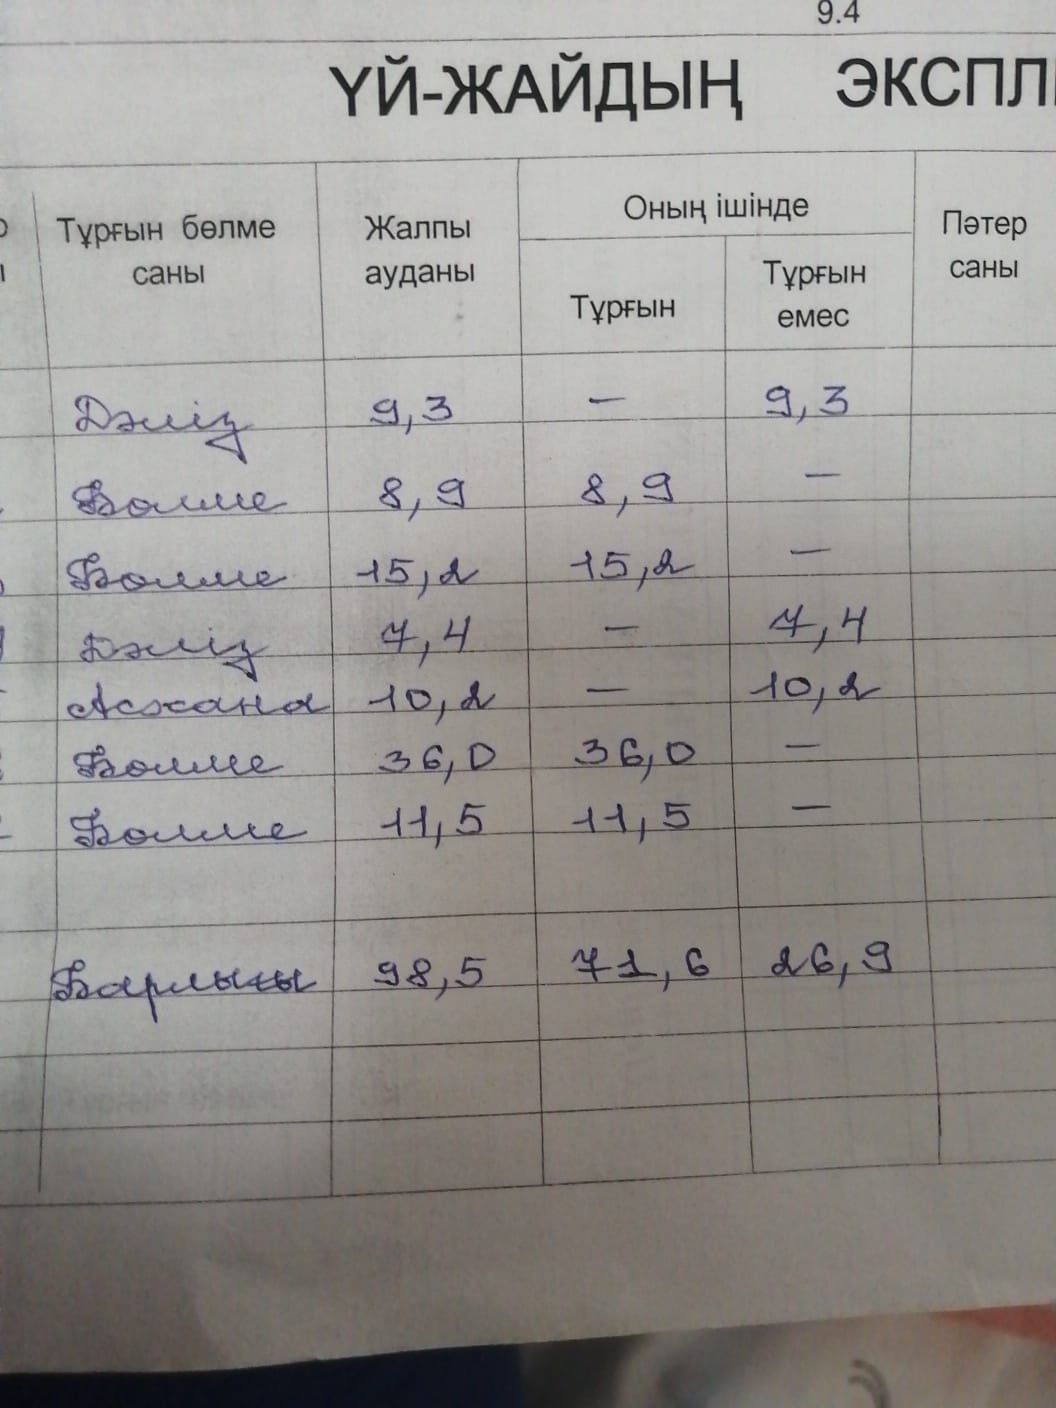 9.4
ҮЙ-ЖАЙДЫҢ ЭКСПЛИ
Тұрғын бөлме саны
Жалпы ауданы
Оның ішінде
Тұрғын
Тұрғын емес
Пәтер саны
Дәліз 9,3 — 9,3
Бөлме 8,9 8,9 —
Бөлме 15,2 15,2 —
Дәліз 7,4 — 7,4
Асхана 10,2 — 10,2
Бөлме 36,0 36,0 —
Бөлме 11,5 11,5 —
Барлығы 98,5 71,6 26,9